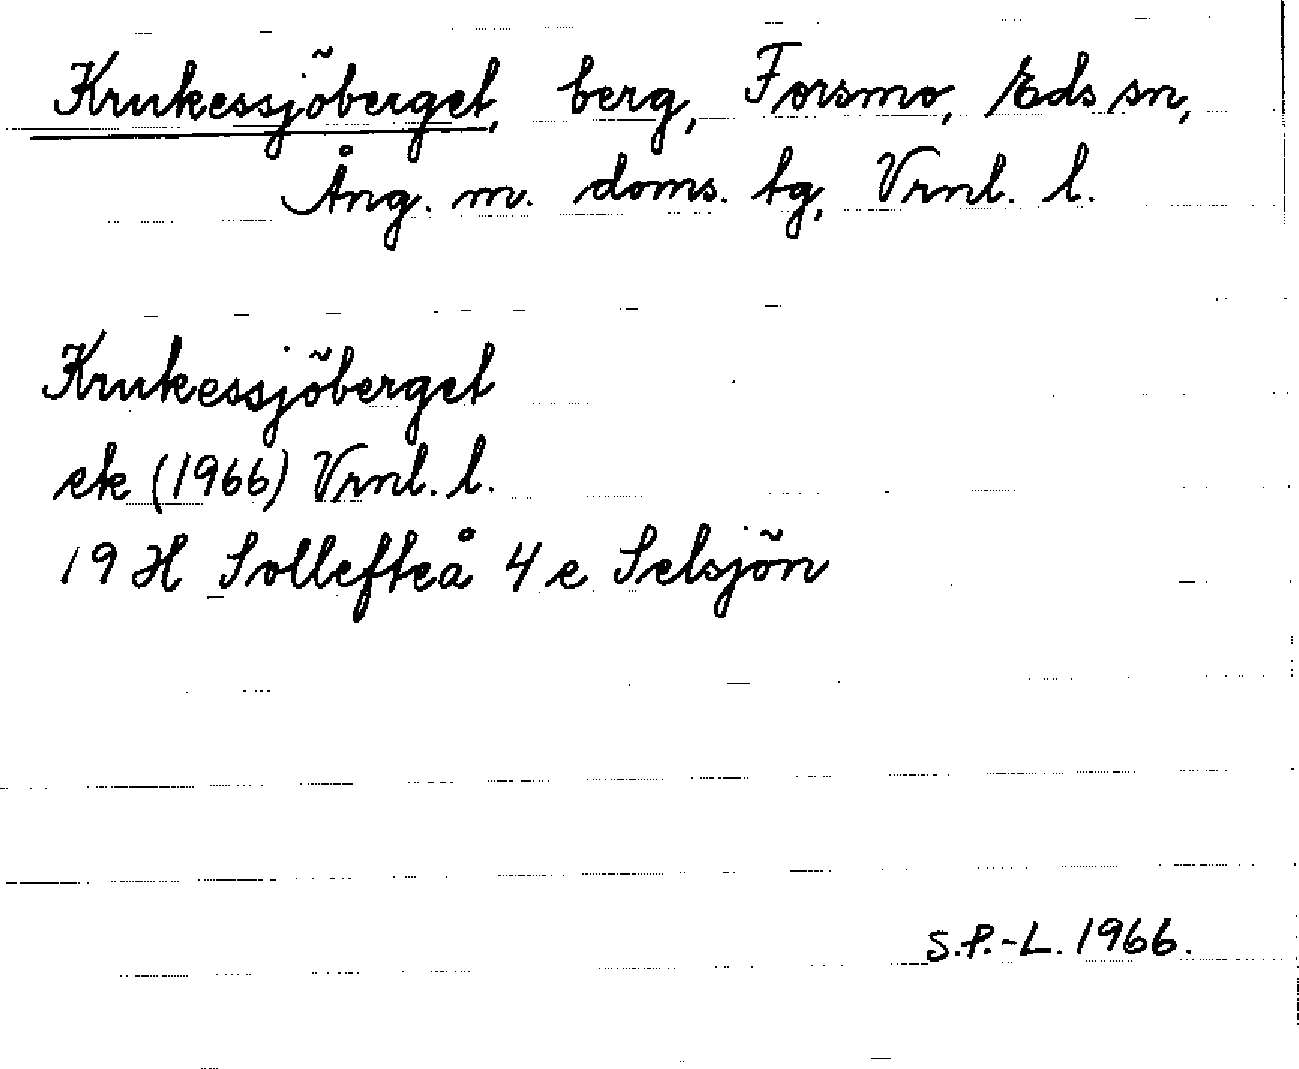 Krukessjöberget, berg, Forsmo, Eds sn,
Ång. m. doms. tg, Vrnl. l.
Krukessjöberget
ek (1966) Vrnl. l.
19 H Sollefteå 4 e Selsjön
S.P.-L. 1966.